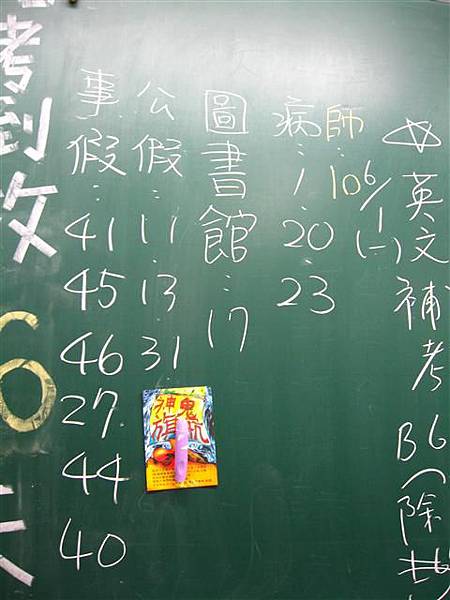 ☆英文補考 B6(除
6/1(一)
師:10
病:1.20 23
圖書館:17
公假:11.13.31
事假:41 45 46 27. 44 40
神鬼
考到文 6